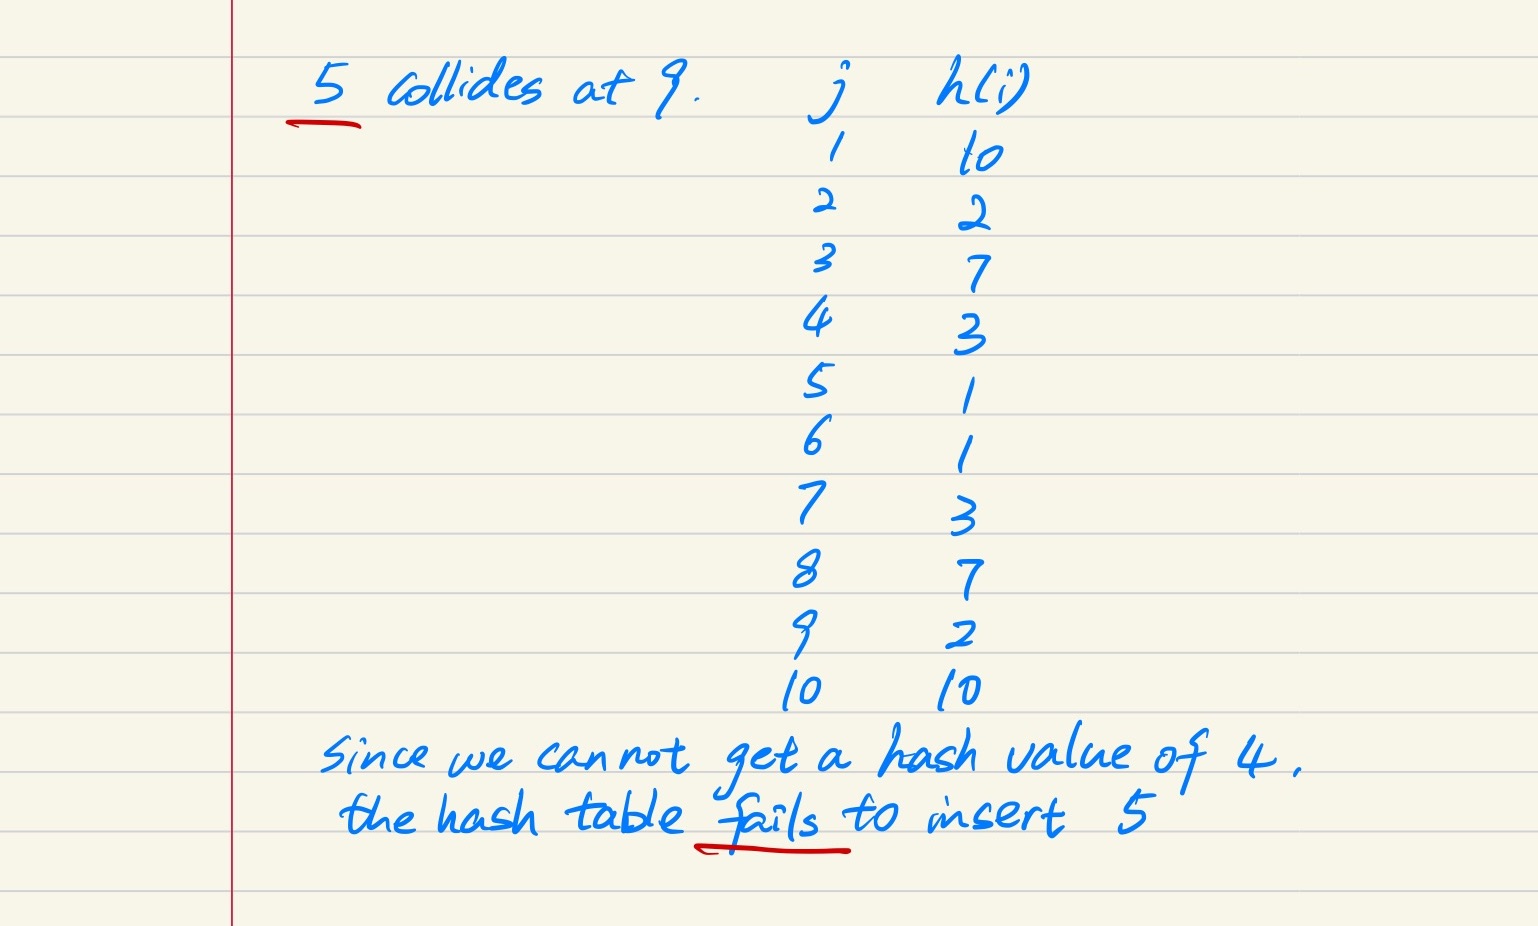 5 collides at 9. j h(i)
1 10
2 2
3 7
4 3
5 1
6 1
7 3
8 7
9 2
10 10
since we cannot get a hash value of 4.
the hash table fails to insert 5